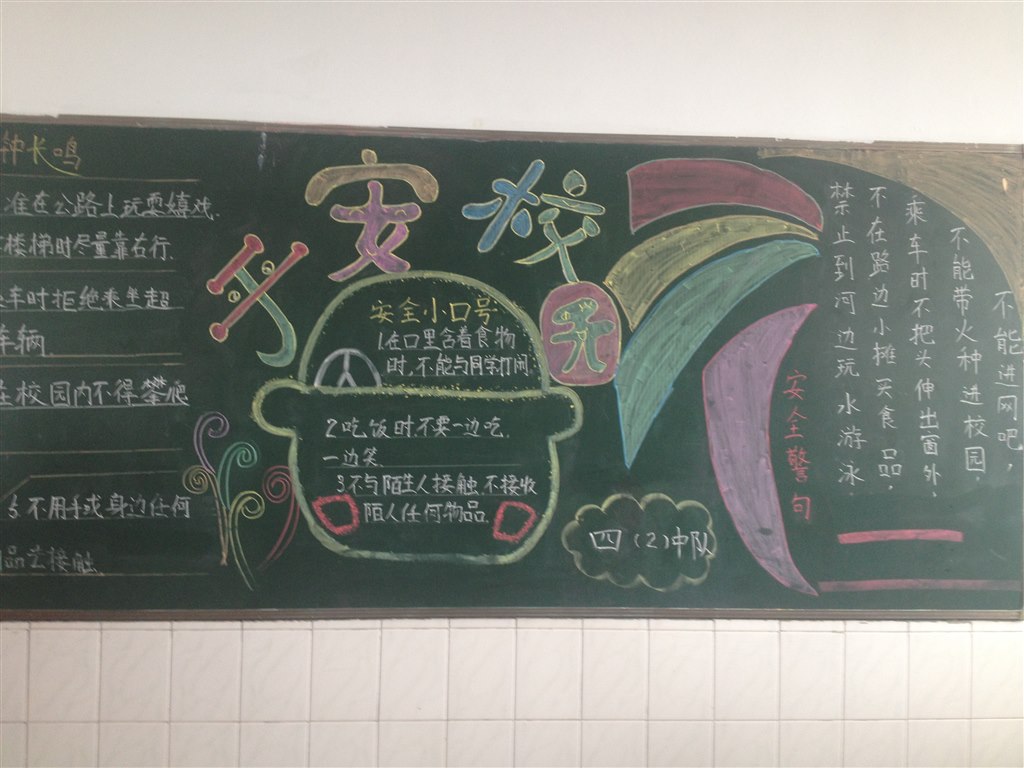 钟长鸣
准在公路上玩耍嬉戏.
楼梯时尽量靠右行.
车时拒绝乘坐超
车辆.
在校园内不得攀爬
5不用手或身边任何
品去接触
安校
安全小口号
1.在口里含着食物
时,不能与同学打闹.
2吃饭时,不要一边吃,
一边笑.
3不与陌生人接触,不接收
陌人任何物品.
四(2)中队
安全警句
禁止到河边玩水游泳.
不在路边小摊买食品,
乘车时不把头伸出窗外,
不能带火种进校园.
不能进网吧,